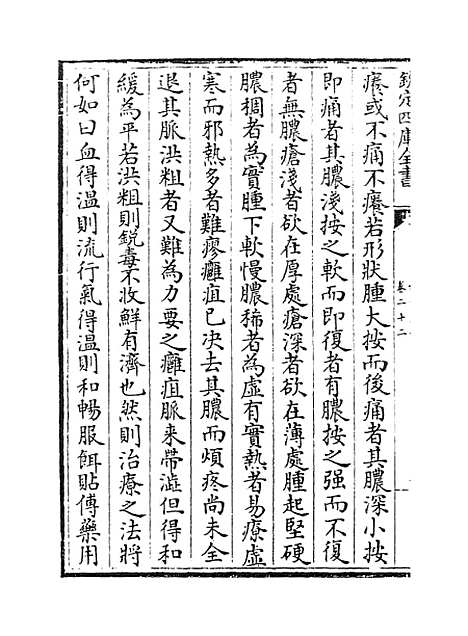 欽定四庫全書
卷二十二
癢或不痛不癢若形狀腫大按而後痛者其膿深小按
即痛者其膿淺按之軟而即復者有膿按之强而不復
者無膿瘡淺者欲在厚處瘡深者欲在薄處腫起堅硬
膿稠者為實腫下軟慢膿稀者為虛有實熱者易療虛
寒而邪熱多者難療癰疽已決去其膿而煩疼尚未全
退其脈洪粗者又難為力要之癰疽脈来帶澁但得和
緩為平若洪粗則鋭毒不收鮮有濟也然則治療之法將
何如曰血得温則流行氣得温則和暢服餌貼傅藥用